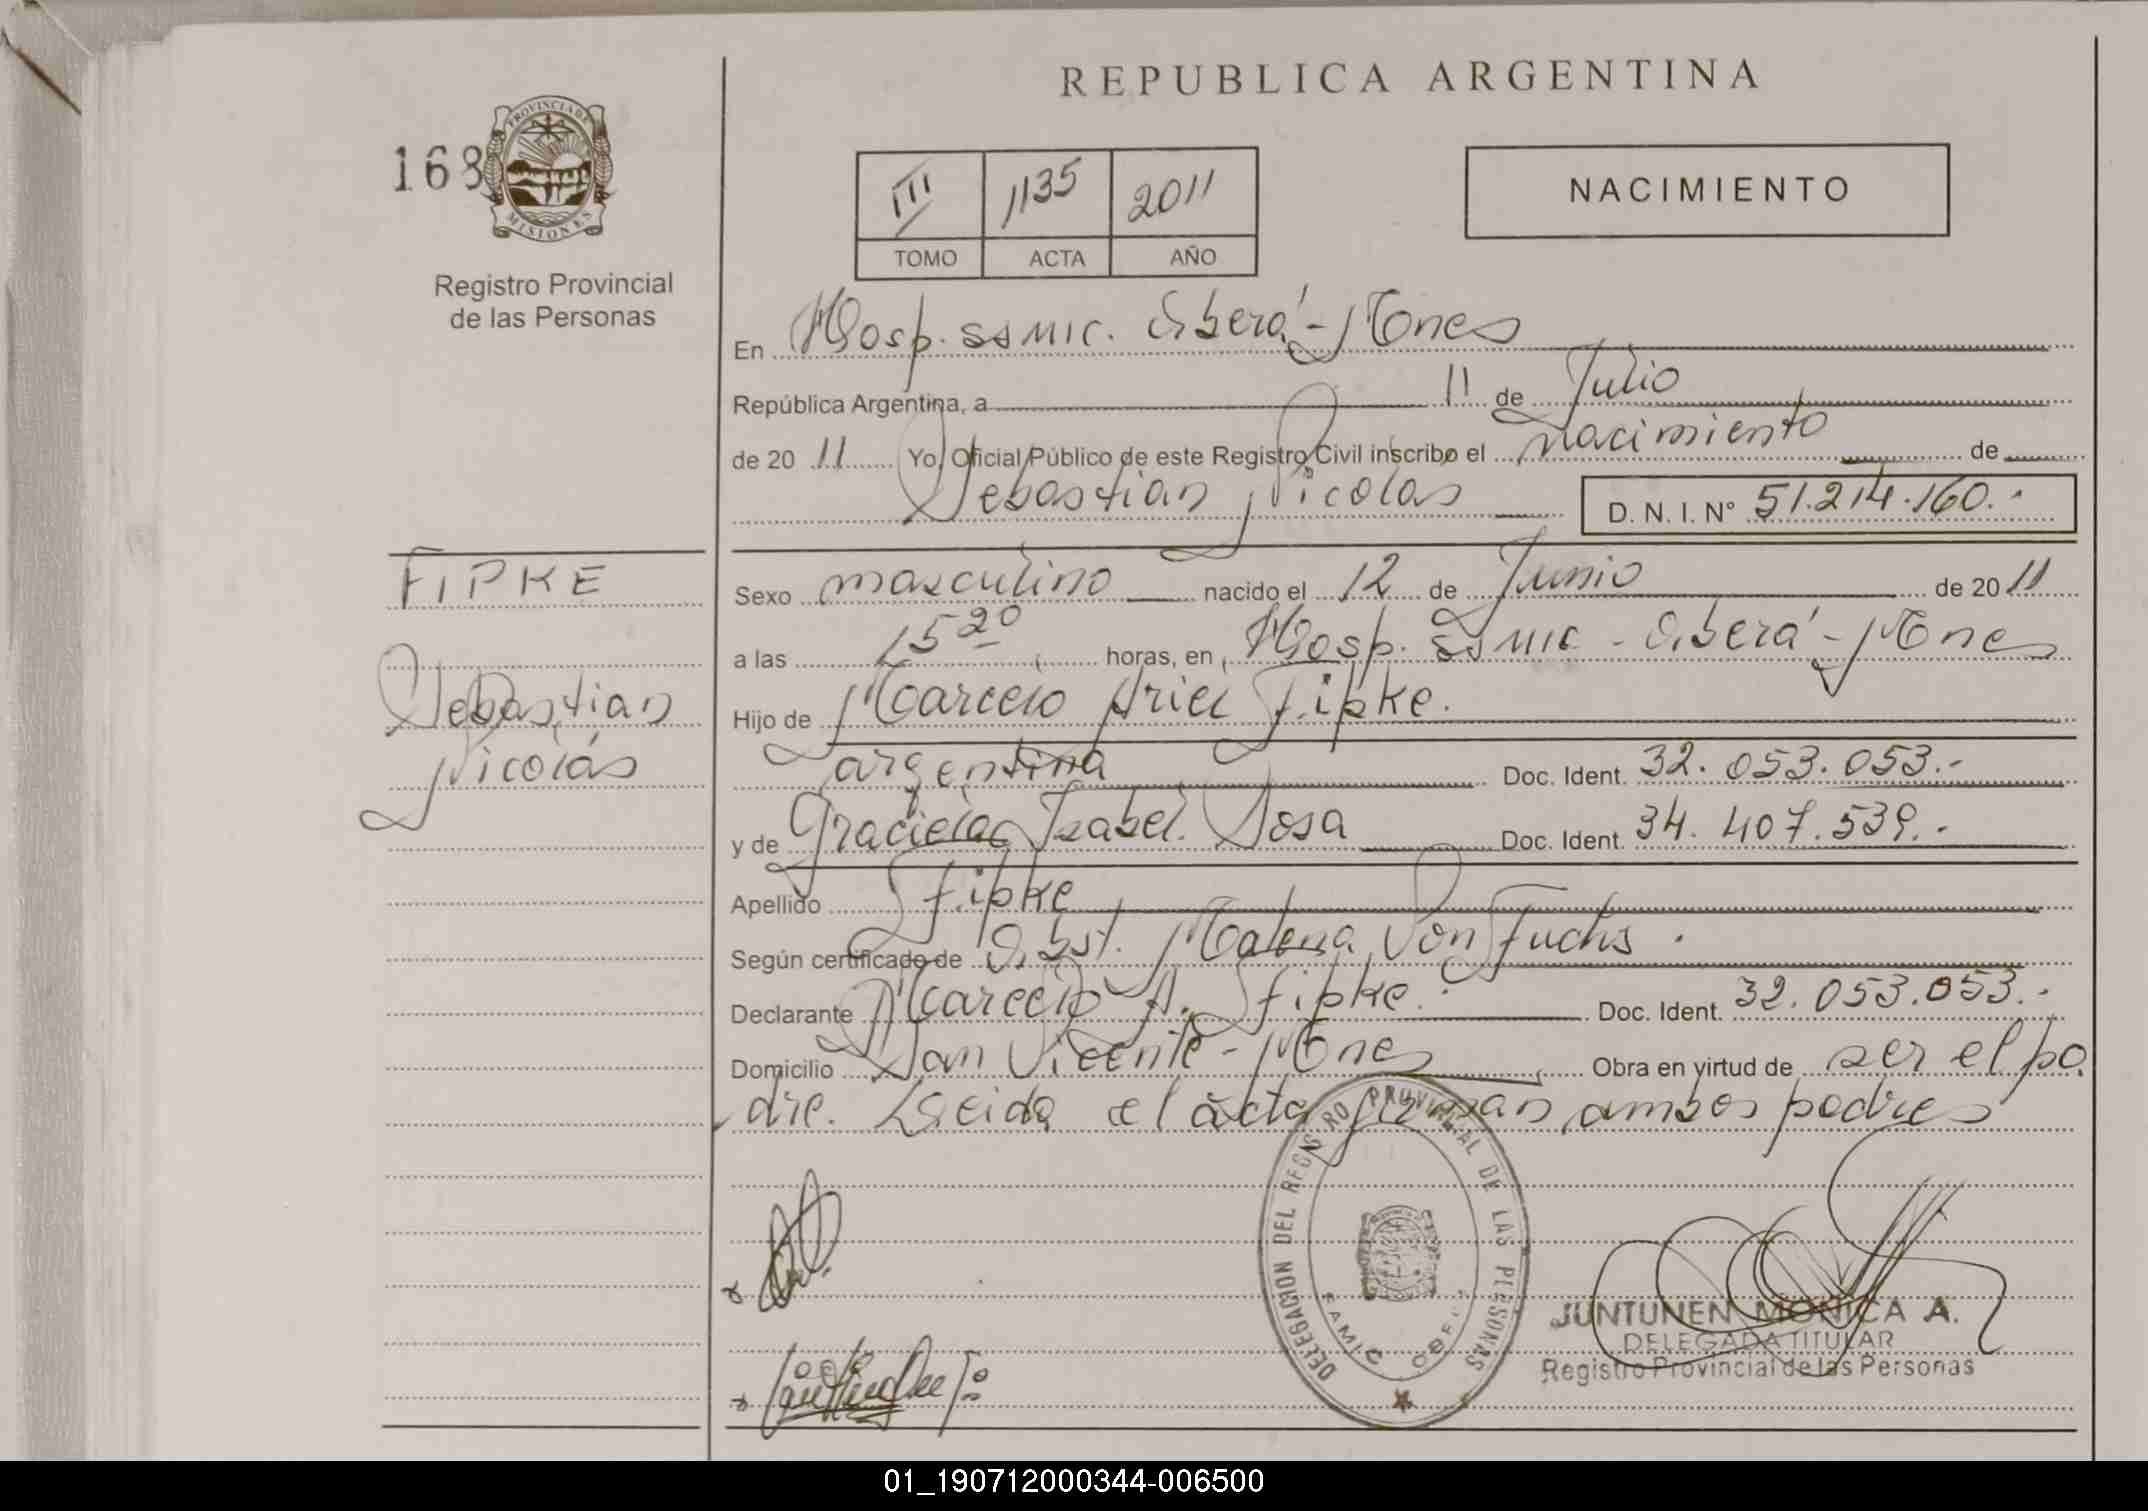 REPUBLICA ARGENTINA
168
PROVINCIA DE
MISIONES
Registro Provincial
de las Personas
III 1135 2011
TOMO ACTA AÑO
NACIMIENTO
En Hosp. SAMIC. Oberá - Mnes
República Argentina, a 11 de Julio
de 20 11 Yo, Oficial Público de este Registro Civil inscribo el nacimiento de
Sebastian Nicolas D. N. I. Nº 51.214.160.-
FIPKE
Sebastian
Nicolás
Sexo masculino nacido el 12 de Junio de 20 11
a las 15 20 horas, en Hosp. SAMIC - Oberá - Mnes
Hijo de Marcelo Ariel Fipke.
argentina Doc. Ident. 32.053.053.-
y de Graciela Isabel Sosa Doc. Ident. 34.407.539.-
Apellido Fipke
Según certificado de Obst. Malena Von Fuchs.
Declarante Marcelo A. Fipke. Doc. Ident. 32.053.053.-
Domicilio San Vicente - Mnes Obra en virtud de ser el pa
dre. Leida el acta firman ambos padres
DELEGACION DEL REGISTRO PROVINCIAL DE LAS PERSONAS
SAMIC OBERA
JUNTUNEN MONICA A.
DELEGADA TITULAR
Registro Provincial de las Personas
01_190712000344-006500